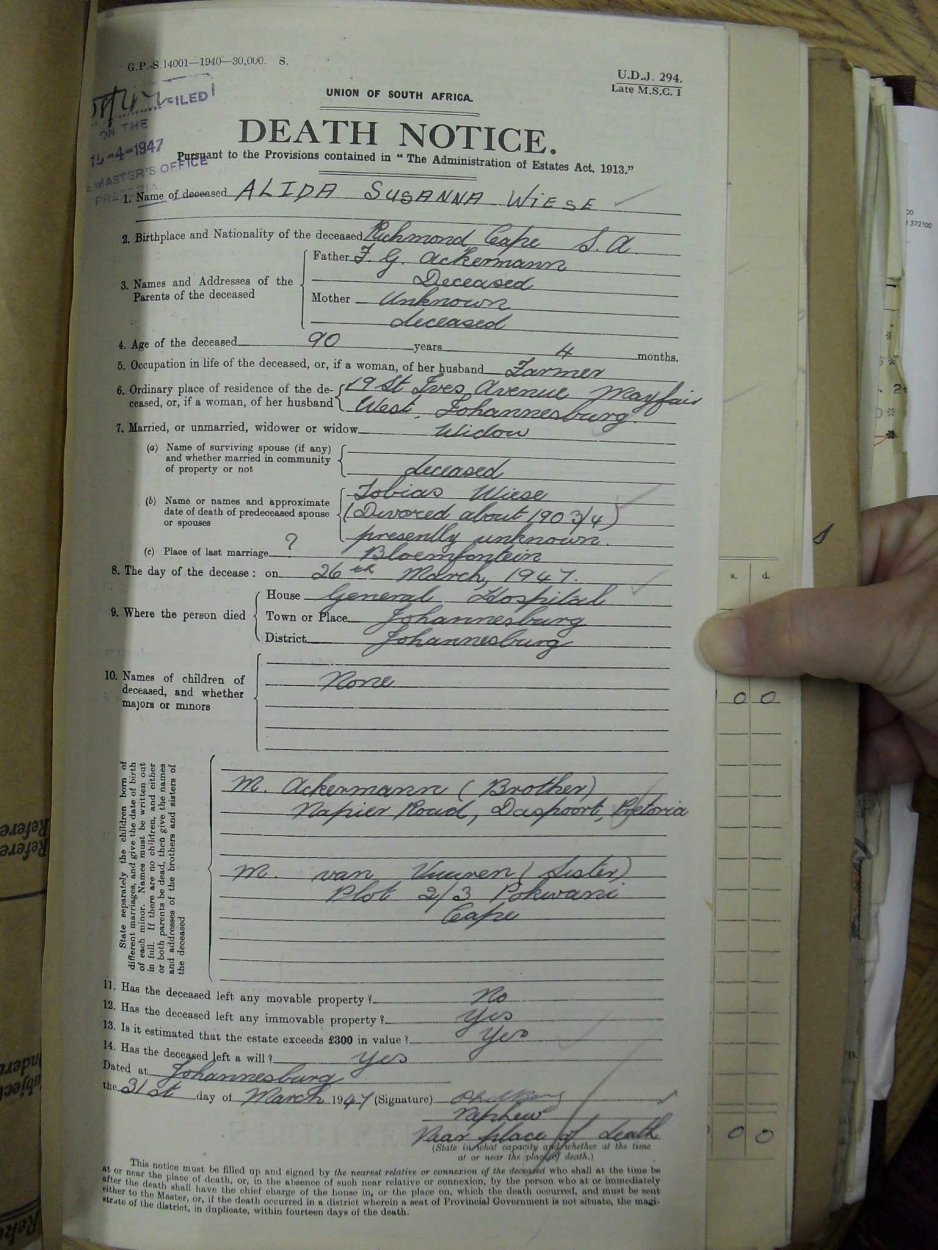 G.P.-S.14001—1940—30,000. S.
U.D.J. 294.
Late M.S.C. 1
UNION OF SOUTH AFRICA.
FILED
ON THE
-4-1947
MASTER'S OFFICE
DEATH NOTICE.
Pursuant to the Provisions contained in “The Administration of Estates Act, 1913.”
1. Name of deceased ALIDA SUSANNA WIESE
2. Birthplace and Nationality of the deceased Richmond Cape S.A.
3. Names and Addresses of the Parents of the deceased
Father F. G. Ackermann
Deceased
Mother Unknown
deceased
4. Age of the deceased 90 years 4 months.
5. Occupation in life of the deceased, or, if a woman, of her husband Farmer
6. Ordinary place of residence of the de-
ceased, or, if a woman, of her husband
19 St Ives Avenue Mayfair
West. Johannesburg.
7. Married, or unmarried, widower or widow Widow
(a) Name of surviving spouse (if any)
and whether married in community
of property or not
deceased
(b) Name or names and approximate
date of death of predeceased spouse
or spouses
Tobias Wiese
(Divorced about 1903/4)
presently unknown.
(c) Place of last marriage ? Bloemfontein
8. The day of the decease: on 26th March, 1947.
9. Where the person died
House General Hospital
Town or Place Johannesburg
District Johannesburg
10. Names of children of
deceased, and whether
majors or minors
None
State separately the children born of
different marriages, and give the date of birth
of each minor. Names must be written out
in full. If there are no children, and either
or both parents be dead, then give the names
and addresses of the brothers and sisters of
the deceased
M. Ackermann (Brother)
Napier Road, Daspoort, Pretoria
M. van Vuuren (Sister)
Plot 2/3 Pokwani
Cape
11. Has the deceased left any movable property? No
12. Has the deceased left any immovable property? Yes
13. Is it estimated that the estate exceeds £300 in value? Yes
14. Has the deceased left a will? Yes
Dated at Johannesburg
the 31st day of March 1947 (Signature)
Nephew
Near place of death
(State in what capacity and whether at the time
at or near the place of death.)
This notice must be filled up and signed by the nearest relative or connexion of the deceased who shall at the time be
at or near the place of death, or, in the absence of such near relative or connexion, by the person who at or immediately
after the death shall have the chief charge of the house in, or the place on, which the death occurred, and must be sent
either to the Master, or, if the death occurred in a district wherein a seat of Provincial Government is not situate, the magi-
strate of the district, in duplicate, within fourteen days of the death.
s. d.
0 0
0 0
372100